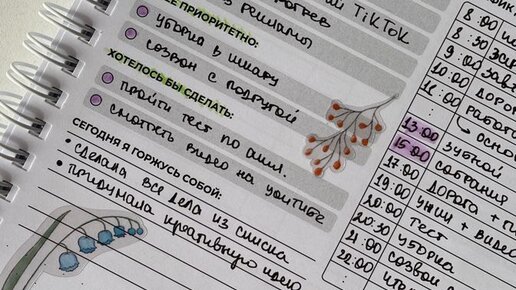 TikTok
ПРИОРИТЕТНО:
уборка в шкафу
созвон с подругой
ХОТЕЛОСЬ БЫ СДЕЛАТЬ:
пройти тест по англ.
смотреть видео на youtube
СЕГОДНЯ Я ГОРЖУСЬ СОБОЙ:
• сделала все дела из списка
• придумала креативную идею
8:00
8:30
9:00
10:00 доро
11:00 работа
↳ осно
13:00 зубной
15:00 собрание
17:00 дорога +
19:00 ужин + видео
20:00 тест
20:30 уборка
21:00 созвон с
22:00